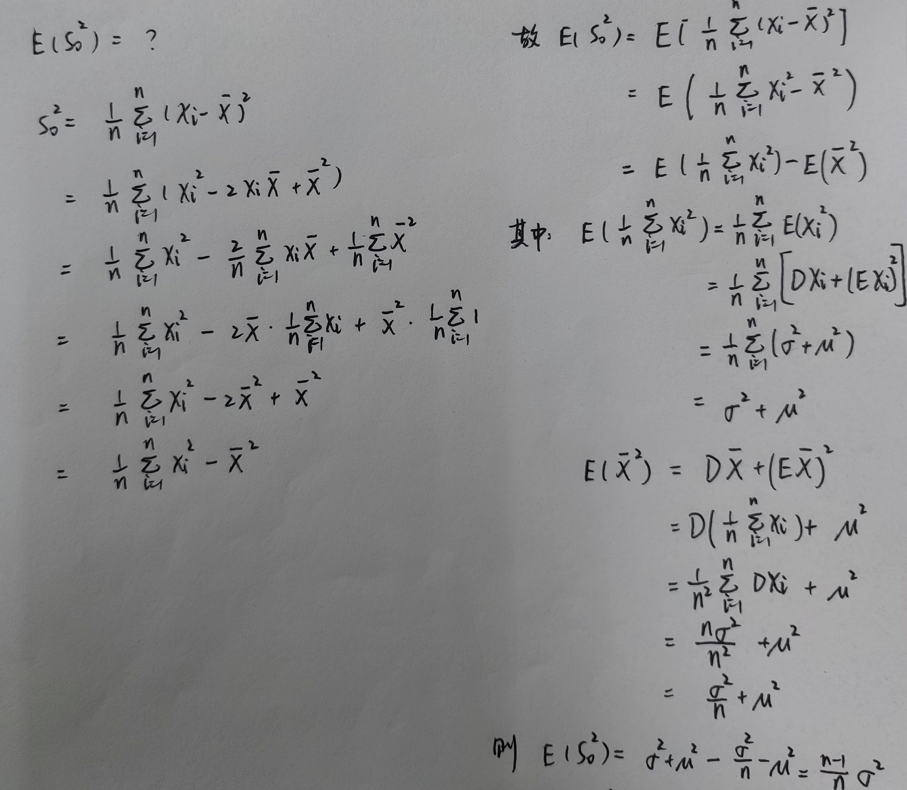 E(S₀²) = ?
S₀² = 1/n Σᵢ₌₁ⁿ (Xᵢ - X̄)²
= 1/n Σᵢ₌₁ⁿ (Xᵢ² - 2XᵢX̄ + X̄²)
= 1/n Σᵢ₌₁ⁿ Xᵢ² - 2/n Σᵢ₌₁ⁿ XᵢX̄ + 1/n Σᵢ₌₁ⁿ X̄²
= 1/n Σᵢ₌₁ⁿ Xᵢ² - 2X̄ · 1/n Σᵢ₌₁ⁿ Xᵢ + X̄² · 1/n Σᵢ₌₁ⁿ 1
= 1/n Σᵢ₌₁ⁿ Xᵢ² - 2X̄² + X̄²
= 1/n Σᵢ₌₁ⁿ Xᵢ² - X̄²
故 E(S₀²) = E[1/n Σᵢ₌₁ⁿ (Xᵢ - X̄)²]
= E(1/n Σᵢ₌₁ⁿ Xᵢ² - X̄²)
= E(1/n Σᵢ₌₁ⁿ Xᵢ²) - E(X̄²)
其中: E(1/n Σᵢ₌₁ⁿ Xᵢ²) = 1/n Σᵢ₌₁ⁿ E(Xᵢ²)
= 1/n Σᵢ₌₁ⁿ [DXᵢ + (EXᵢ)²]
= 1/n Σᵢ₌₁ⁿ (σ² + μ²)
= σ² + μ²
E(X̄²) = DX̄ + (EX̄)²
= D(1/n Σᵢ₌₁ⁿ Xᵢ) + μ²
= 1/n² Σᵢ₌₁ⁿ DXᵢ + μ²
= nσ²/n² + μ²
= σ²/n + μ²
则 E(S₀²) = σ² + μ² - σ²/n - μ² = (n-1)/n σ²